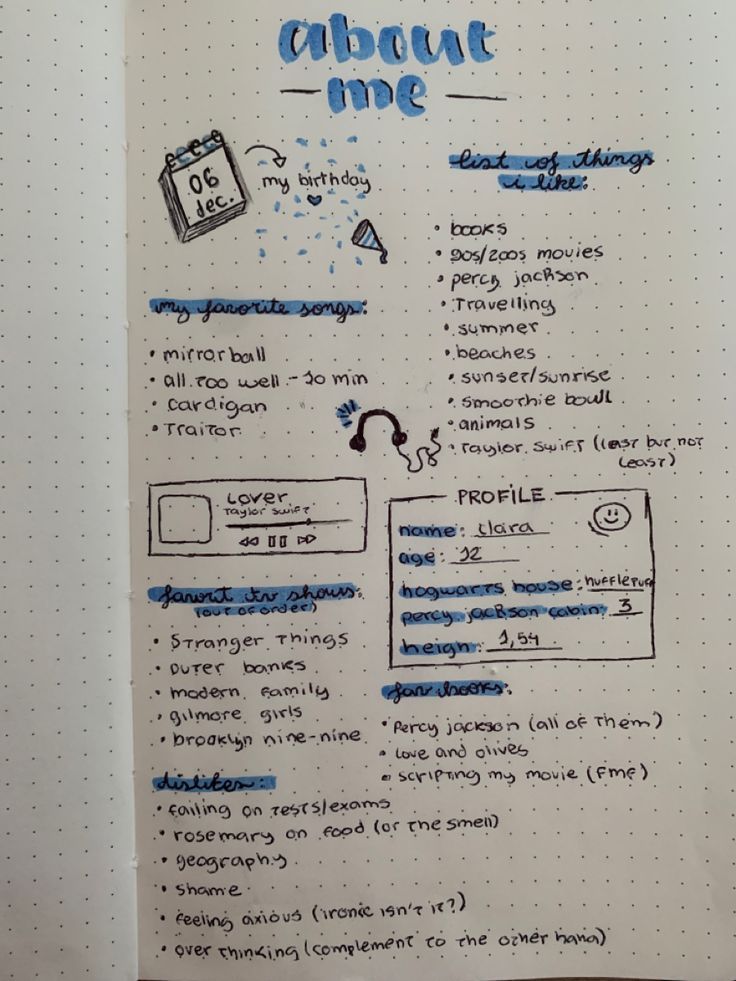 about
me
06
dec.
my birthday
list of things
i like:
• books
• 90s/200s movies
• percy jackson
• Travelling
• summer
• beaches
• sunset/sunrise
• smoothie bowl
• animals
• Taylor swift (last but not
least)
my favorite songs:
• mirrorball
• all too well - 10 min
• cardigan
• Traitor
Lover
Taylor swift
PROFILE
name: clara
age: 12
hogwarts house: hufflepuff
percy jackson cabin: 3
heigh: 1,54
favorit tv shows:
(out of order)
• Stranger Things
• outer banks
• modern family
• gilmore girls
• brooklyn nine-nine
fav books:
• Percy jackson (all of Them)
• Love and olives
• scripting my movie (FMF)
dislikes:
• failing on tests/exams
• rosemary on food (or the smell)
• geography
• shame
• feeling axious (ironic isn't it?)
• over Thinking (complement to the other hand)